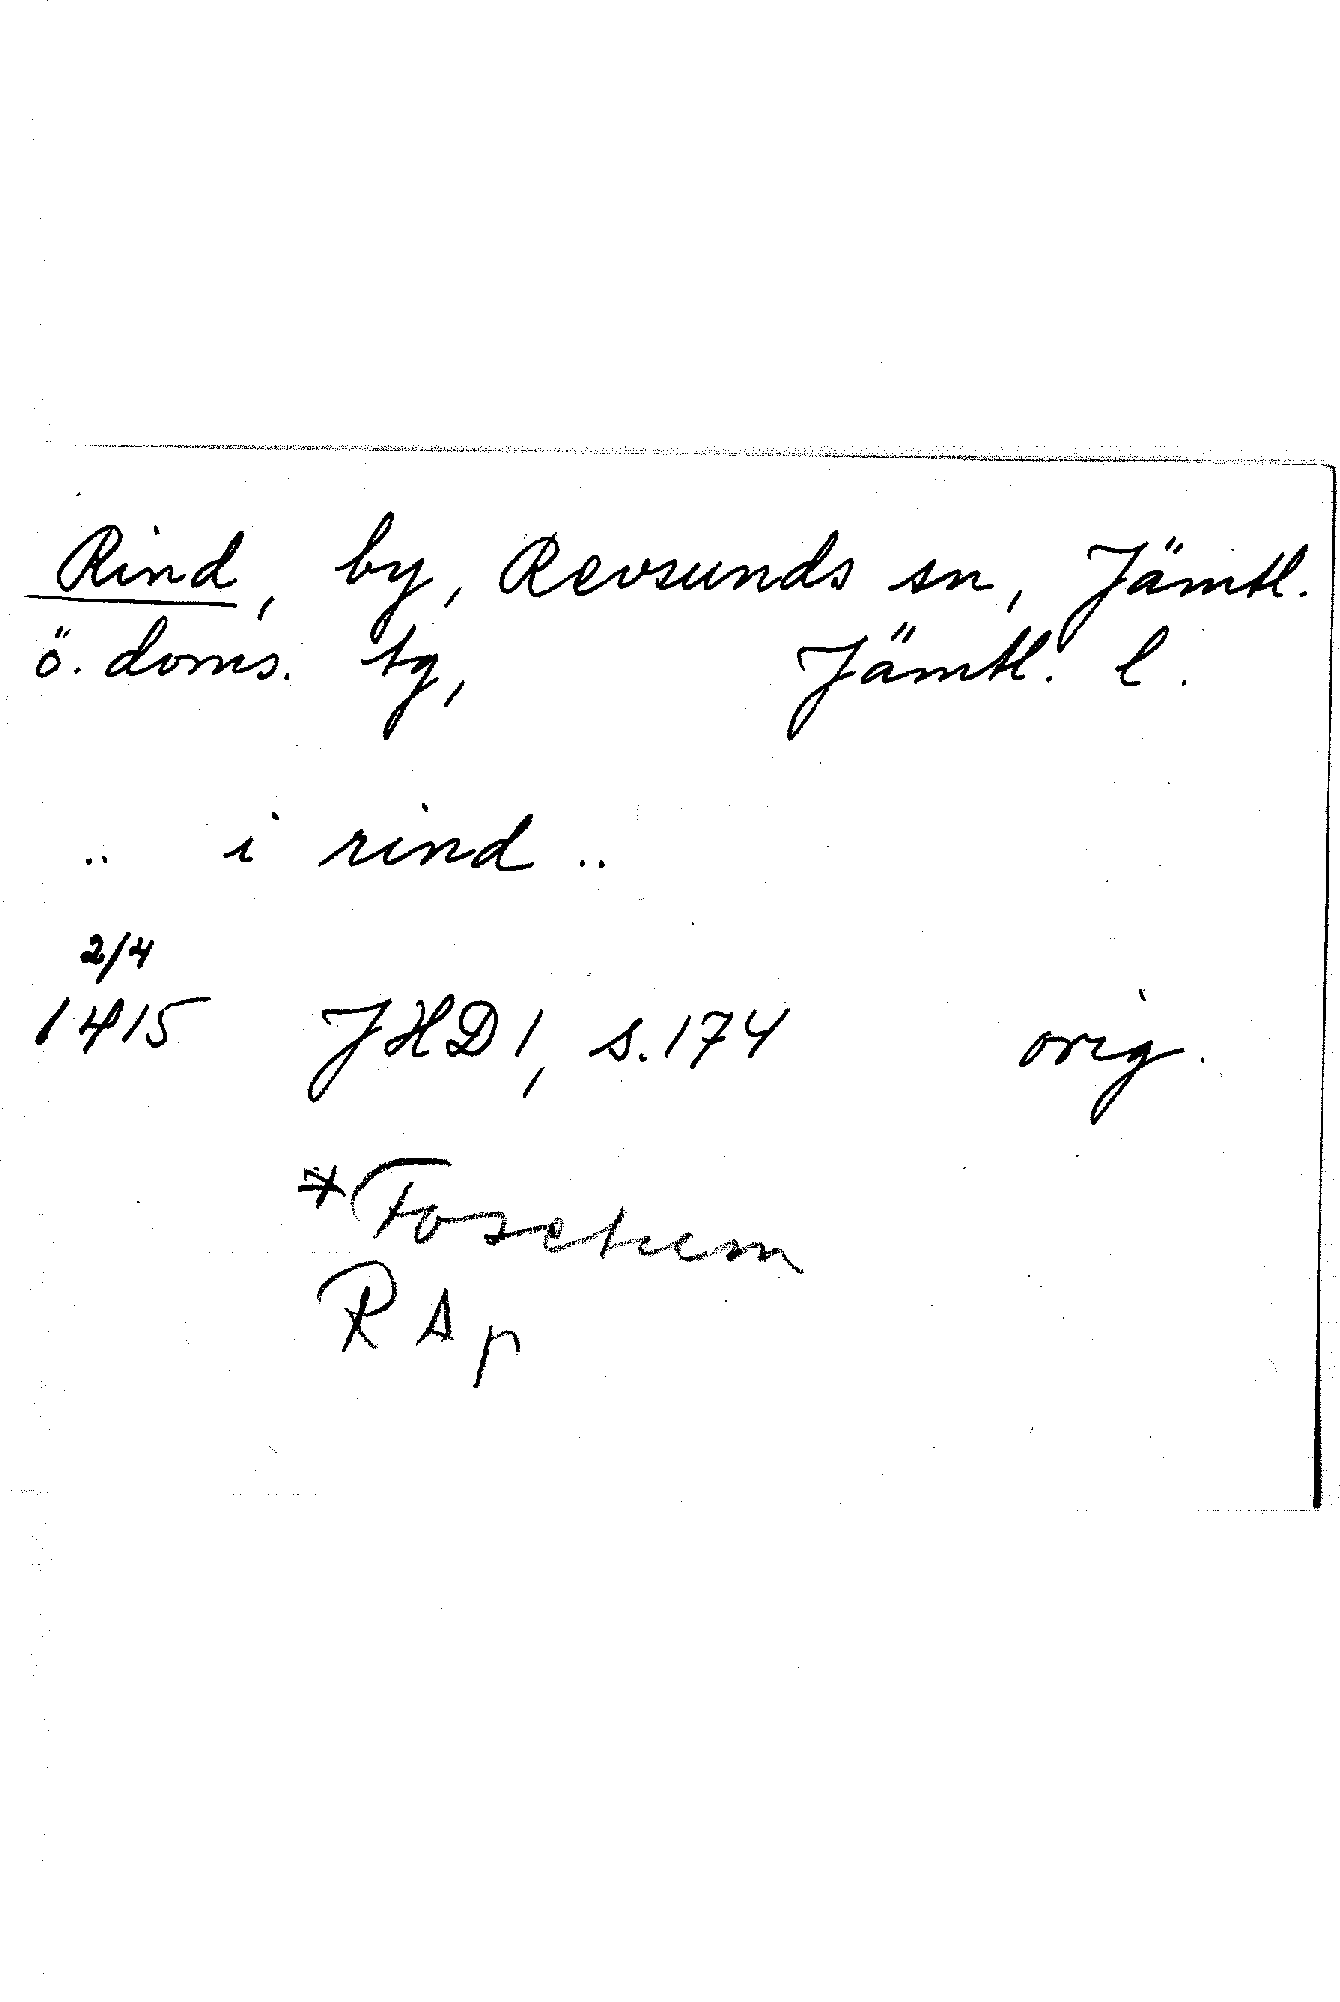 Rind, by, Revsunds sn, Jämtl.
ö. doms. tg, Jämtl. l.
.. i rind ..
2/4
1415 JHD 1, s. 174 orig.
RAp